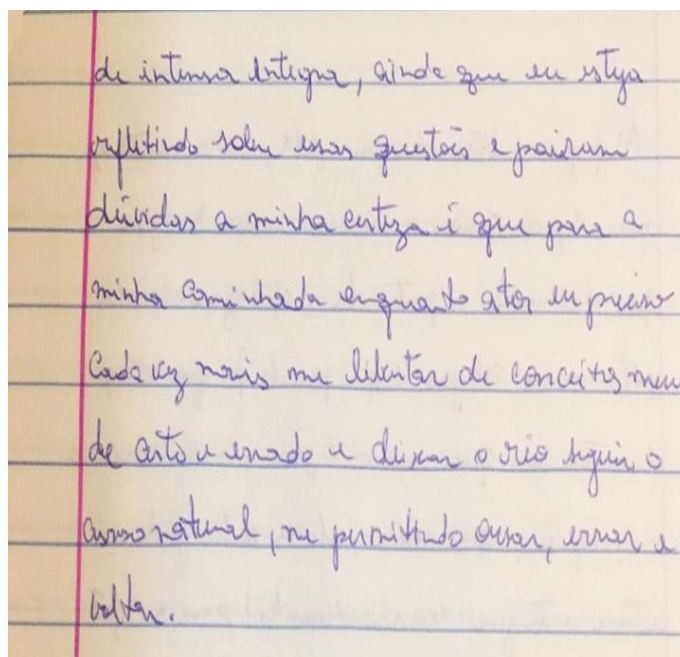 de intensa entrega, ainda que eu esteja
refletindo sobre essas questões e pairam
dúvidas a minha certeza é que para a
minha caminhada enquanto ator eu preciso
cada vez mais me libertar de conceitos meus
de certo e errado e deixar o rio seguir o
curso natural, me permitindo ousar, errar e
voltar.